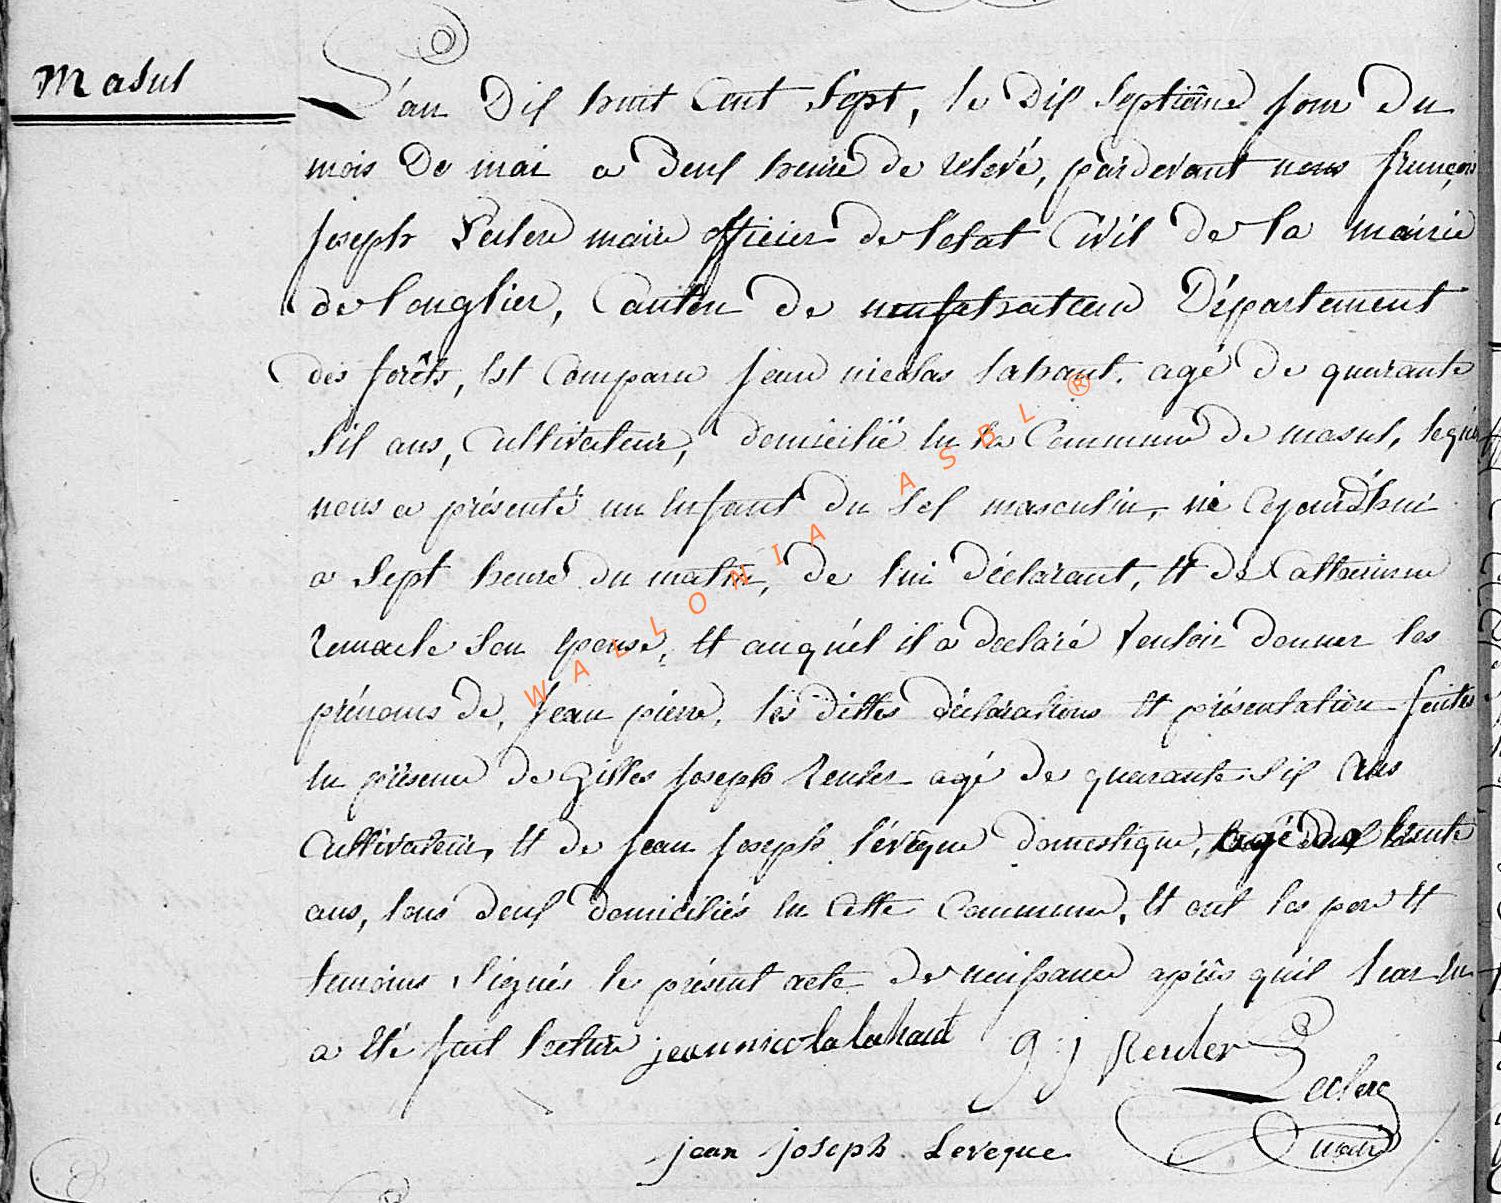 Masul
L'an Dix huit Cent Sept, le Dix Septième jour Du
mois De mai a Deux heure de relevé, pardevant nous françois
Joseph Leclere maire officier de l'etat Civil de la mairie
de longlier, Canton de neufchateau Département
des forêts, Est Comparu Jean nicolas lahaut. agé De quarante
Six ans, Cultivateur, domicilié En la Commune De masul, lequel
nous a présenté un Enfant du Sex masculin, né Cejourd'hui
a Sept heure du matin, de lui déclarant, Et de Catherinne
Remacle Son Epouse, Et auquel il a déclaré Vouloir donner les
prénoms de, Jean piérre, les dittes déclarations Et présentation faites
En présence de Gilles Joseph Reuler agé de quarante Six Ans
Cultivateur, Et de Jean Joseph lévêque domestique, agé de trente
ans, tous deux domiciliés En Cette Commune, Et ont les pere Et
temoins Signés le présent acte de naissance après qu'il leur En
a Eté fait lecture jean nicola lahaut g : j Reuler
Leclere
jean joseph Leveque maire
WALLONIA ASBL ®